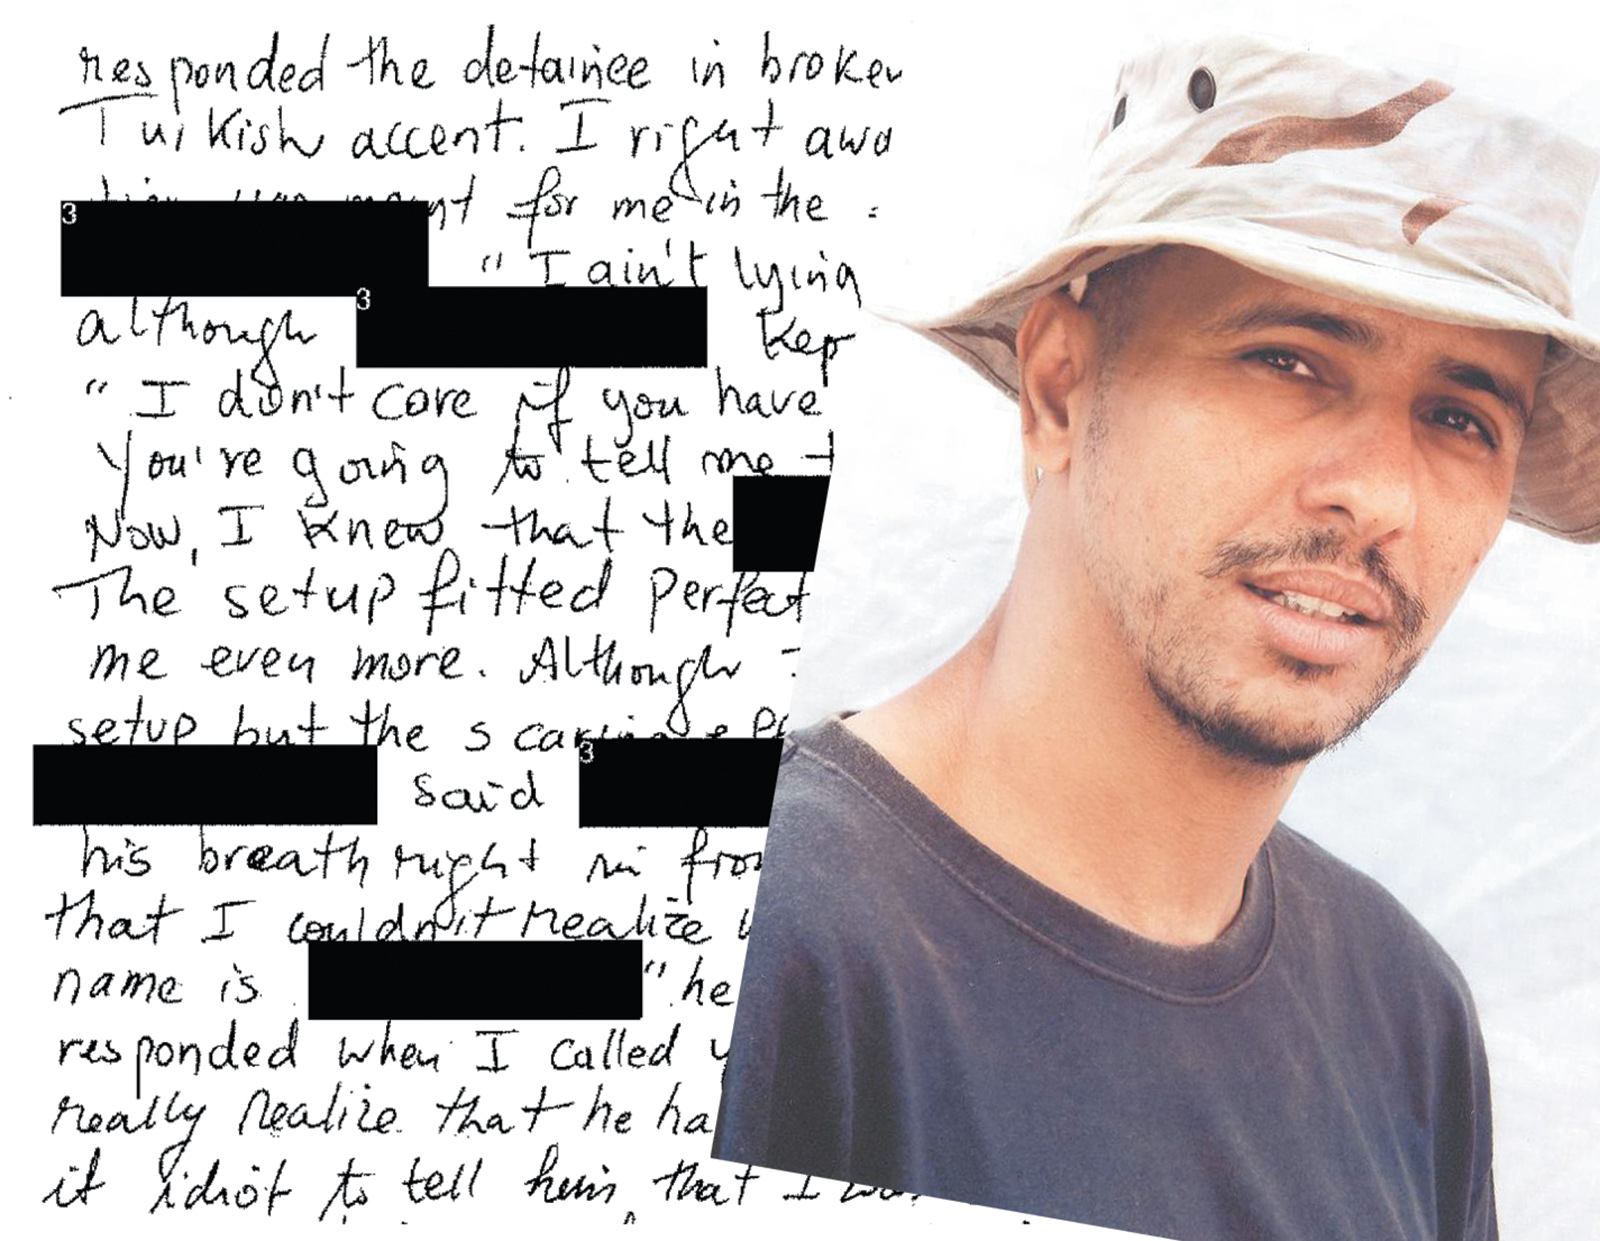 responded the detainee in broken
Turkish accent. I right awa
meant for me in the
3
"I ain't lying
although 3 kep
"I don't care if you have
You're going to tell me t
Now, I knew that the
The setup fitted perfect
me even more. Although
setup but the scaring
said 3
his breath right in fron
that I couldn't realize
name is " he
responded when I called y
really realize that he ha
it idiot to tell him that I